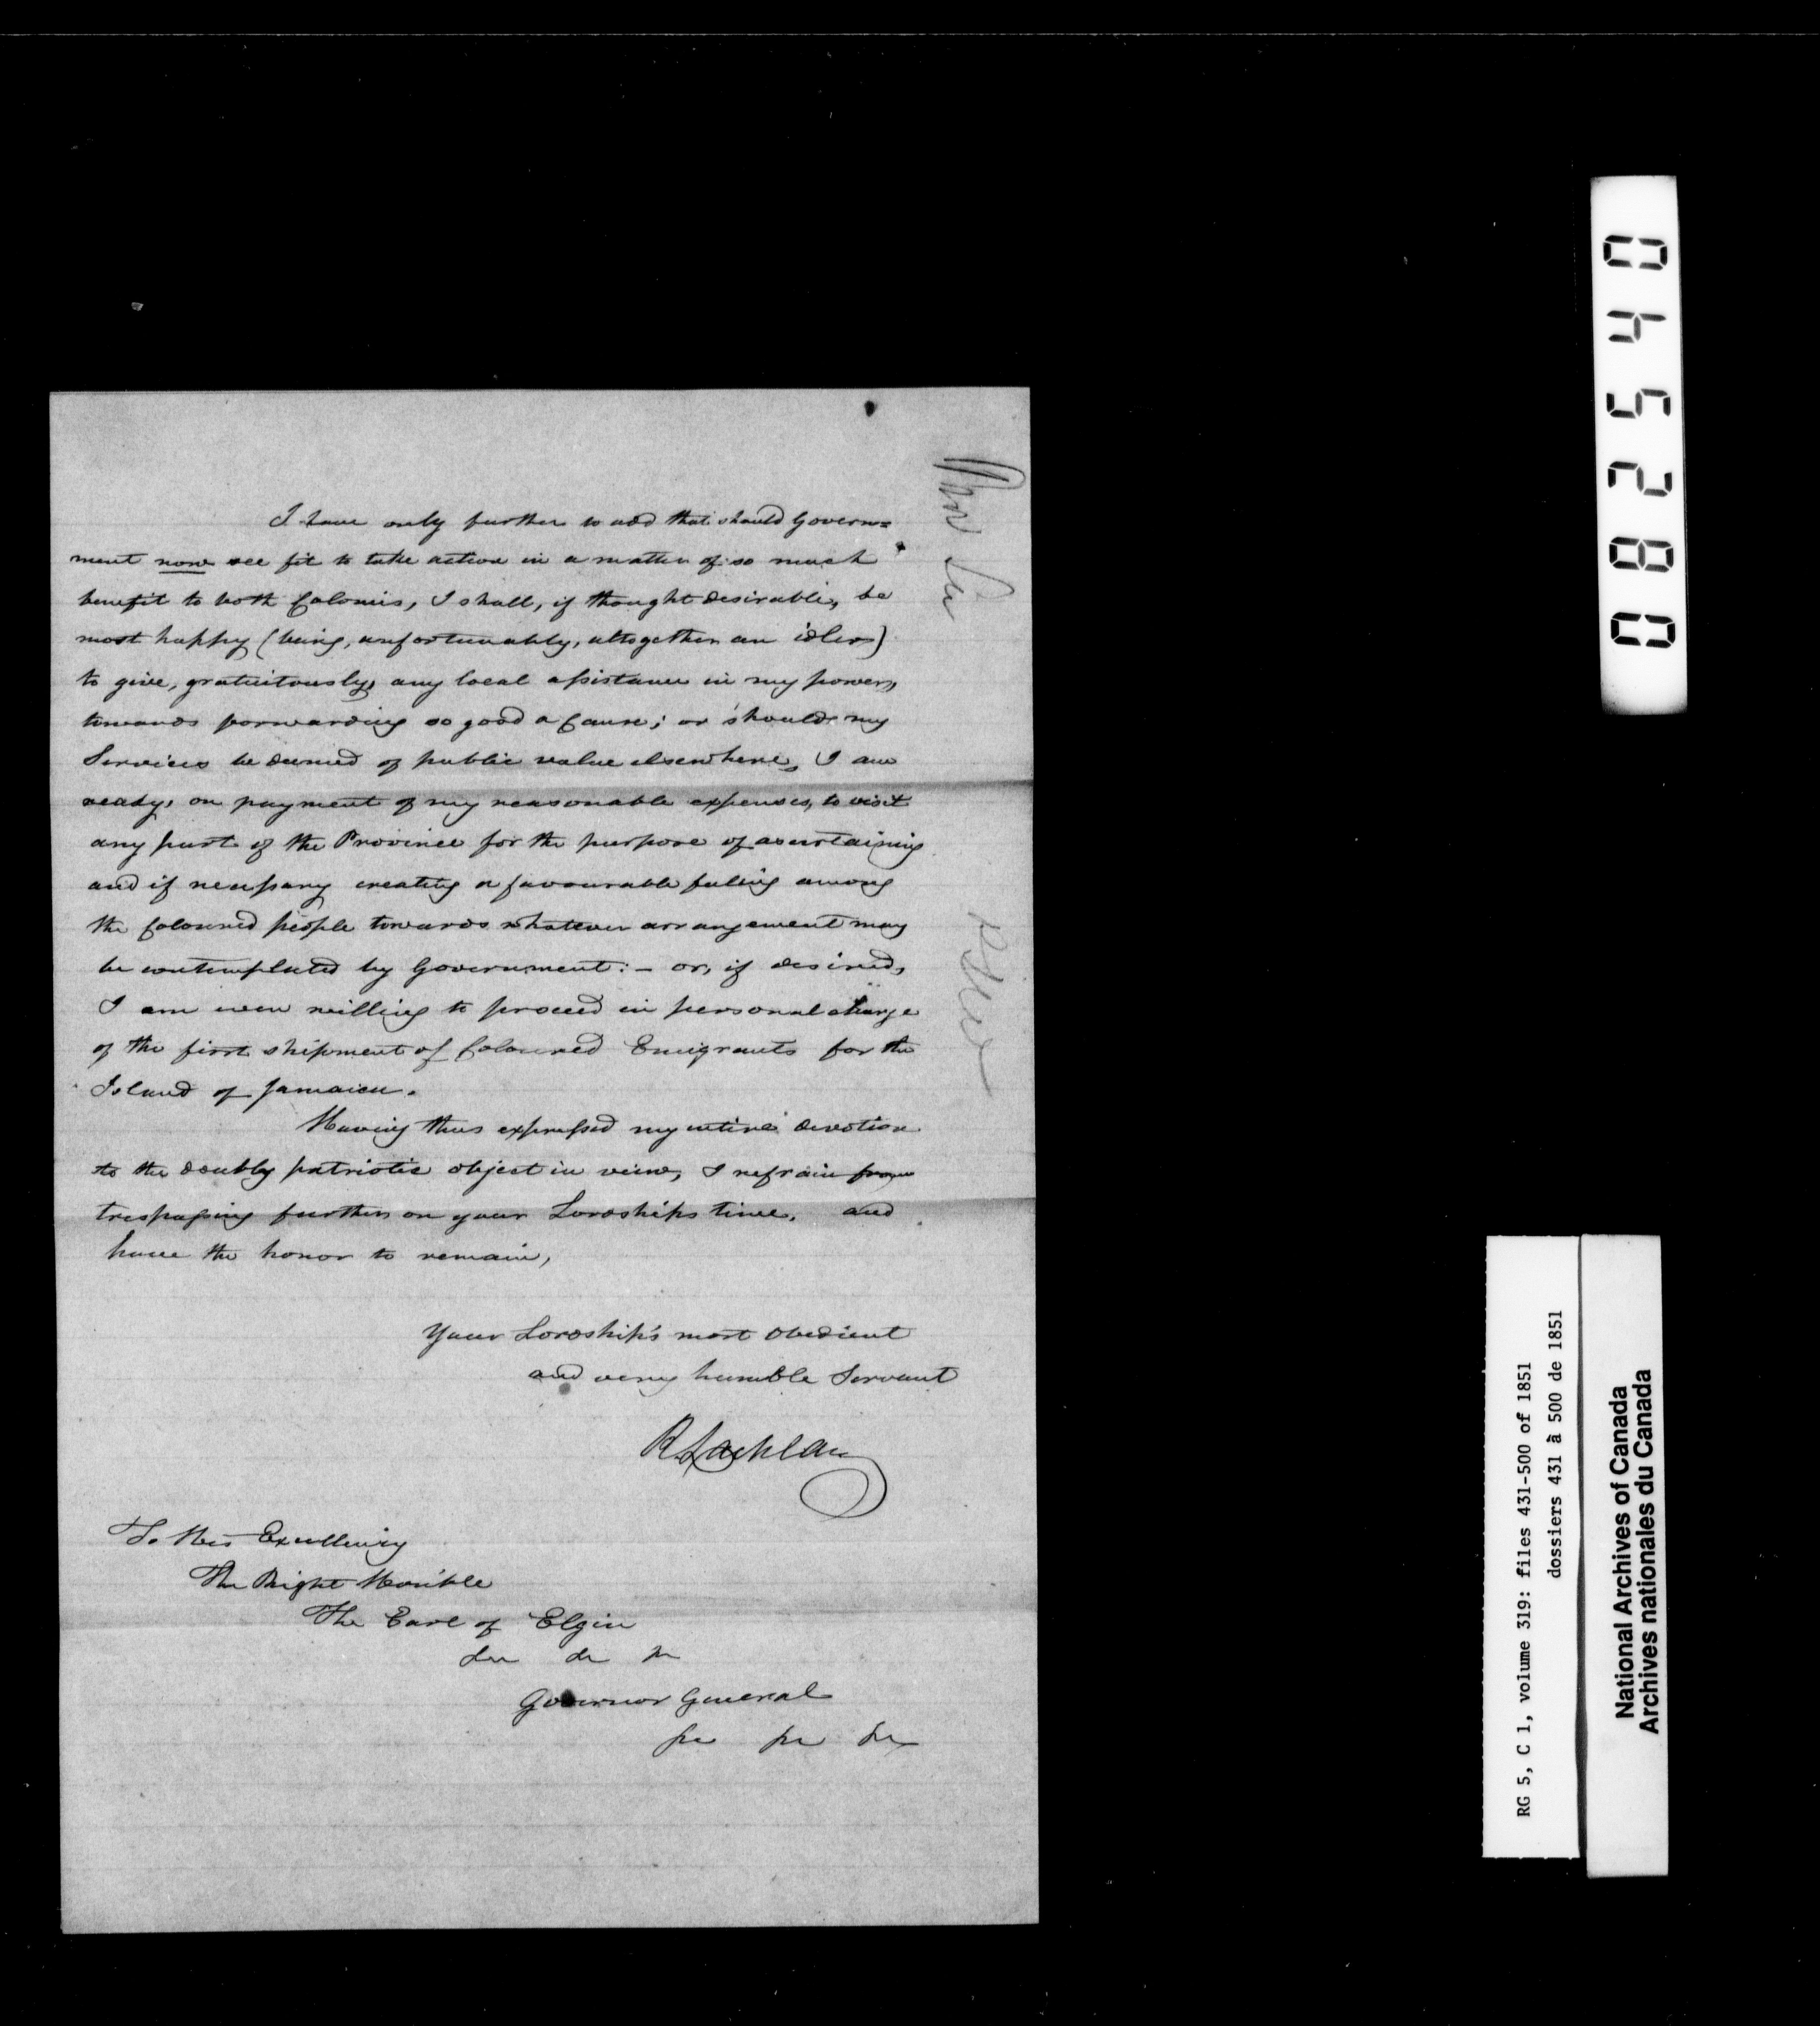 I have only further to add that should Govern=
ment now see fit to take action in a matter of so much
benefit to both Colonies, I shall, if thought desirable, be
most happy (being, unfortunately, altogether an idler)
to give, gratuitously, any local assistance in my power,
towards forwarding so good a Cause; or should my
Services be deemed of public value elsewhere, I am
ready, on payment of my reasonable expenses, to visit
any part of the Province for the purpose of ascertaining
and if necessary creating a favourable feeling among
the Coloured people towards whatever arrangement may
be contemplated by Government: – or, if desired,
I am even willing to proceed in personal charge
of the first shipment of Coloured Emigrants for the
Island of Jamaica.
Having thus expressed my entire devotion
to the doubly patriotic object in view, I refrain from
trespassing further on your Lordships time, and
have the honor to remain,
Your Lordship's most Obedient
and very humble Servant
R Lachlan
To His Excellency
The Right Hon'ble
The Earl of Elgin
&c &c &c
Governor General
&c &c &c
082540
RG 5, C 1, volume 319: files 431-500 of 1851
dossiers 431 à 500 de 1851
National Archives of Canada
Archives nationales du Canada